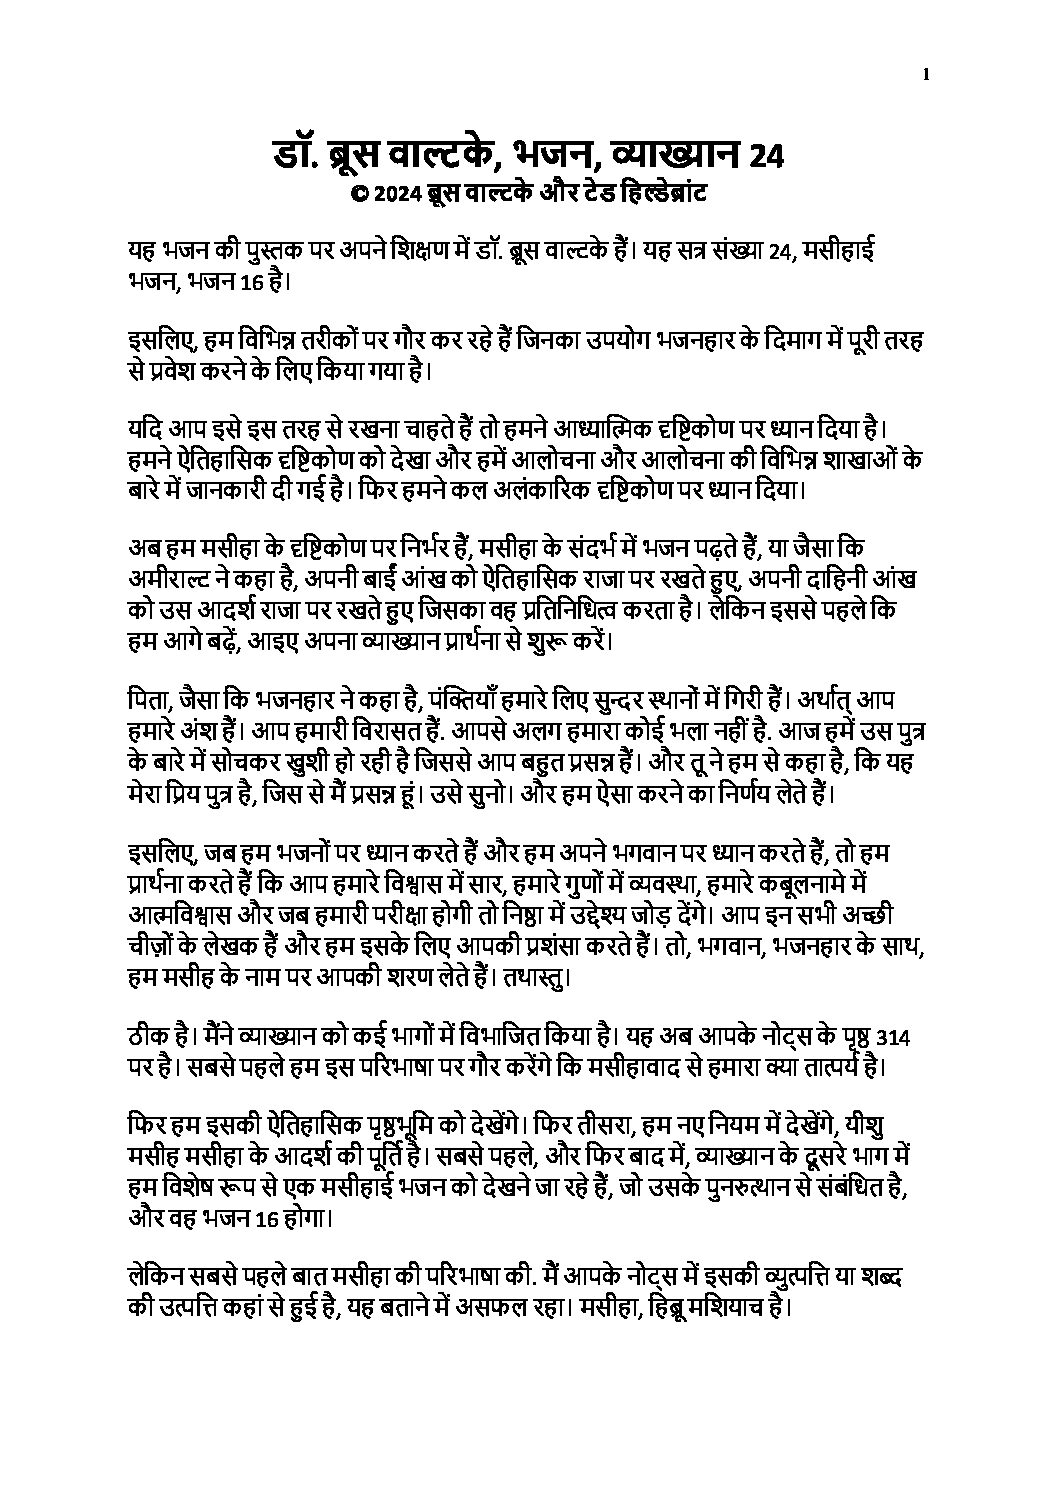 1
डॉ. ब्रूस वाल्टके, भजन, व्याख्यान 24
© 2024 ब्रूस वाल्टके और टेड हिल्डेब्रांट
यह भजन की पुस्तक पर अपने शिक्षण में डॉ. ब्रूस वाल्टके हैं। यह सत्र संख्या 24, मसीहाई
भजन, भजन 16 है।
इसलिए, हम विभिन्न तरीकों पर गौर कर रहे हैं जिनका उपयोग भजनहार के दिमाग में पूरी तरह
से प्रवेश करने के लिए किया गया है।
यदि आप इसे इस तरह से रखना चाहते हैं तो हमने आध्यात्मिक दृष्टिकोण पर ध्यान दिया है।
हमने ऐतिहासिक दृष्टिकोण को देखा और हमें आलोचना और आलोचना की विभिन्न शाखाओं के
बारे में जानकारी दी गई है। फिर हमने कल अलंकारिक दृष्टिकोण पर ध्यान दिया।
अब हम मसीहा के दृष्टिकोण पर निर्भर हैं, मसीहा के संदर्भ में भजन पढ़ते हैं, या जैसा कि
अमीराल्ट ने कहा है, अपनी बाईं आंख को ऐतिहासिक राजा पर रखते हुए, अपनी दाहिनी आंख
को उस आदर्श राजा पर रखते हुए जिसका वह प्रतिनिधित्व करता है। लेकिन इससे पहले कि
हम आगे बढ़ें, आइए अपना व्याख्यान प्रार्थना से शुरू करें।
पिता, जैसा कि भजनहार ने कहा है, पंक्तियाँ हमारे लिए सुन्दर स्थानों में गिरी हैं। अर्थात् आप
हमारे अंश हैं। आप हमारी विरासत हैं. आपसे अलग हमारा कोई भला नहीं है. आज हमें उस पुत्र
के बारे में सोचकर खुशी हो रही है जिससे आप बहुत प्रसन्न हैं। और तू ने हम से कहा है, कि यह
मेरा प्रिय पुत्र है, जिस से मैं प्रसन्न हूं। उसे सुनो। और हम ऐसा करने का निर्णय लेते हैं।
इसलिए, जब हम भजनों पर ध्यान करते हैं और हम अपने भगवान पर ध्यान करते हैं, तो हम
प्रार्थना करते हैं कि आप हमारे विश्वास में सार, हमारे गुणों में व्यवस्था, हमारे कबूलनामे में
आत्मविश्वास और जब हमारी परीक्षा होगी तो निष्ठा में उद्देश्य जोड़ देंगे। आप इन सभी अच्छी
चीज़ों के लेखक हैं और हम इसके लिए आपकी प्रशंसा करते हैं। तो, भगवान, भजनहार के साथ,
हम मसीह के नाम पर आपकी शरण लेते हैं। तथास्तु।
ठीक है। मैंने व्याख्यान को कई भागों में विभाजित किया है। यह अब आपके नोट्स के पृष्ठ 314
पर है। सबसे पहले हम इस परिभाषा पर गौर करेंगे कि मसीहावाद से हमारा क्या तात्पर्य है।
फिर हम इसकी ऐतिहासिक पृष्ठभूमि को देखेंगे। फिर तीसरा, हम नए नियम में देखेंगे, यीशु
मसीह मसीहा के आदर्श की पूर्ति है। सबसे पहले, और फिर बाद में, व्याख्यान के दूसरे भाग में
हम विशेष रूप से एक मसीहाई भजन को देखने जा रहे हैं, जो उसके पुनरुत्थान से संबंधित है,
और वह भजन 16 होगा।
लेकिन सबसे पहले बात मसीहा की परिभाषा की. मैं आपके नोट्स में इसकी व्युत्पत्ति या शब्द
की उत्पत्ति कहां से हुई है, यह बताने में असफल रहा। मसीहा, हिब्रू मशियाच है।